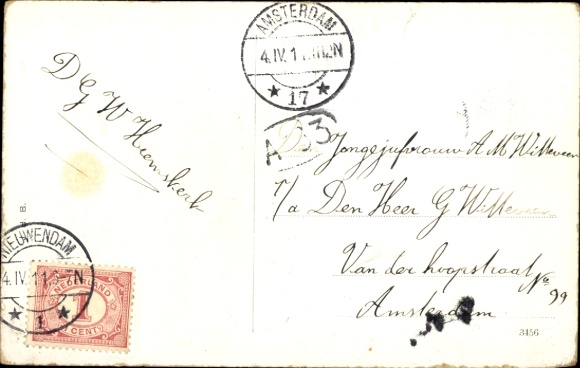 AMSTERDAM
4.IV.1
12N
17
D G W Heemskerk
3
De Jongejufrouw A M Witteveen
p/a Den Heer G Witteveen
Van der hoopstraat No 99
Amsterdam
NIEUWENDAM
4.IV.11
7N
1
NEDERLAND
1
CENT
3456